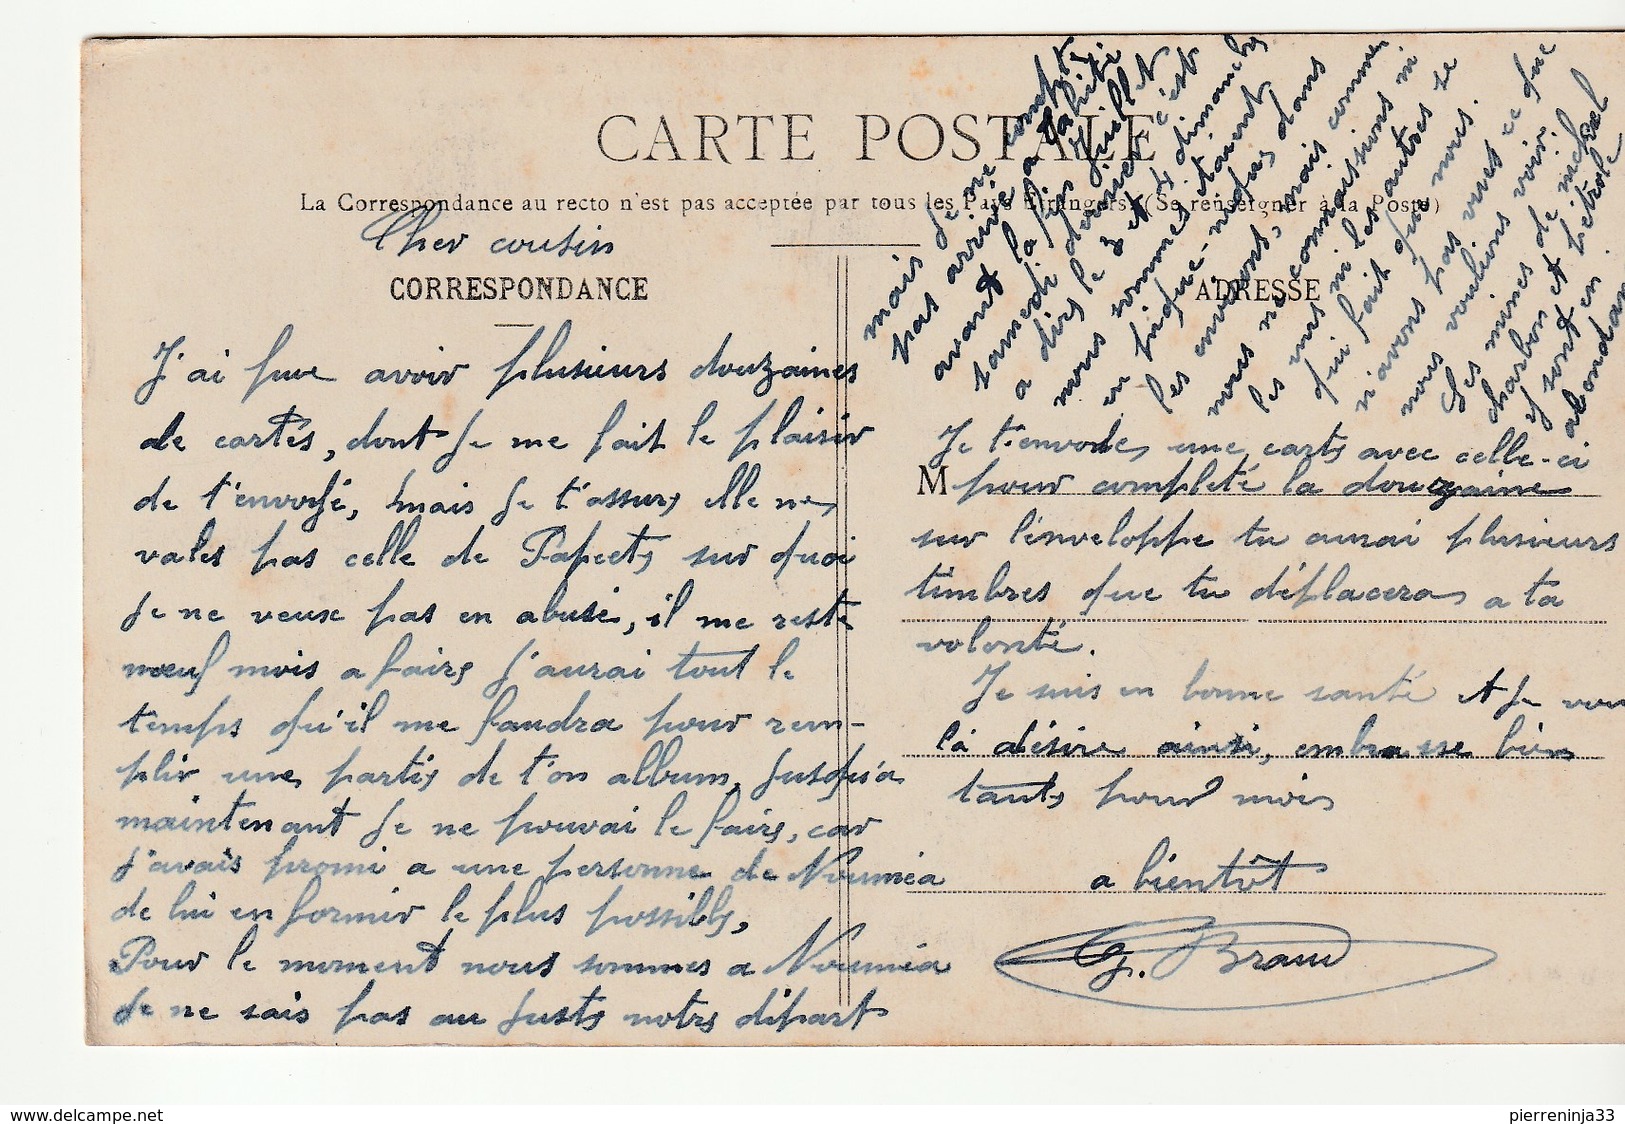 CARTE POSTALE
La Correspondance au recto n'est pas acceptée par tous les Pays Etrangers. (Se renseigner à la Poste)
Cher cousin
CORRESPONDANCE
J'ai puve avoir plusieurs douzaines
de cartes, dont je me fait le plaisir
de t'envoyé, mais je t'assure elle ne
vales pas celle de Papeete sur quoi
je ne veuse pas en abusé, il me reste
neuf mois a faire j'aurai tout le
temps qu'il me faudra pour rem-
plir une partie de t'on album, jusqu'a
maintenant je ne pouvai le faire, car
j'avais promi a une personne de Nouméa
de lui en formir le plus possible,
Pour le moment nous sommes a Nouméa
je ne sais pas au juste notre départ
mais je ne compte
pas arrivé a Tahiti
avant la fin Juillet
samedi dernier c'est
a dire le 3 et 4 dimanche
nous sommes étaient
en pique-niques dans
les environt, mais comme
nous ne connaissions ni
les uns ni les autres se
qui fait que nous
n'avons pas vues ce que
nous voulions voir.
Les mines de nickel
charbon et pétrole
y sont en
abondan
ADRESSE
Je t'envoie une carte avec celle-ci
M pour completé la douzaine
sur l'enveloppe tu aurai plusieurs
timbres que tu déplaceras a ta
volonté.
Je suis en bonne santé et je vou
la désire ainsi, embrasse bien
tante pour moi
a bientôt
G. Braud
www.delcampe.net
pierreninja33